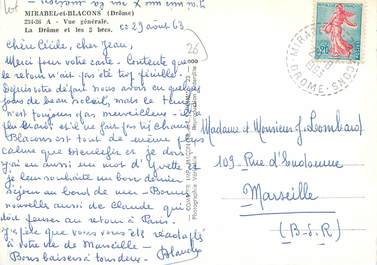 MIRABEL-et-BLACONS (Drôme)
234-26 A - Vue générale.
La Drôme et les 3 becs.
ce 29 août 63
26
Chère Cécile, cher Jean,
Merci pour votre carte - Contente que
le retour n'ait pas été trop pénible.
Depuis votre départ nous avons eu quelques
jours de beau soleil, mais le temps
n'est toujours pas merveilleux - il a
plu et il ne fait pas très chaud
Blacons est tout de même plus
calme que et je dors
J'ai eu aussi un mot d'Yvette et
je leur souhaite un bon dernier
séjour au bord de mer - Bonnes
nouvelles aussi de Claude qui
doit penser au retour à Paris.
J'espère que vous vous êtes réadaptés
à votre vie de Marseille -
Bons baisers à tous deux - Blanche
Madame et Monsieur J. Lombard
109, Rue d'Endoume
Marseille
(B-d-R)
MIRABEL
BLACONS
DROME
0,25